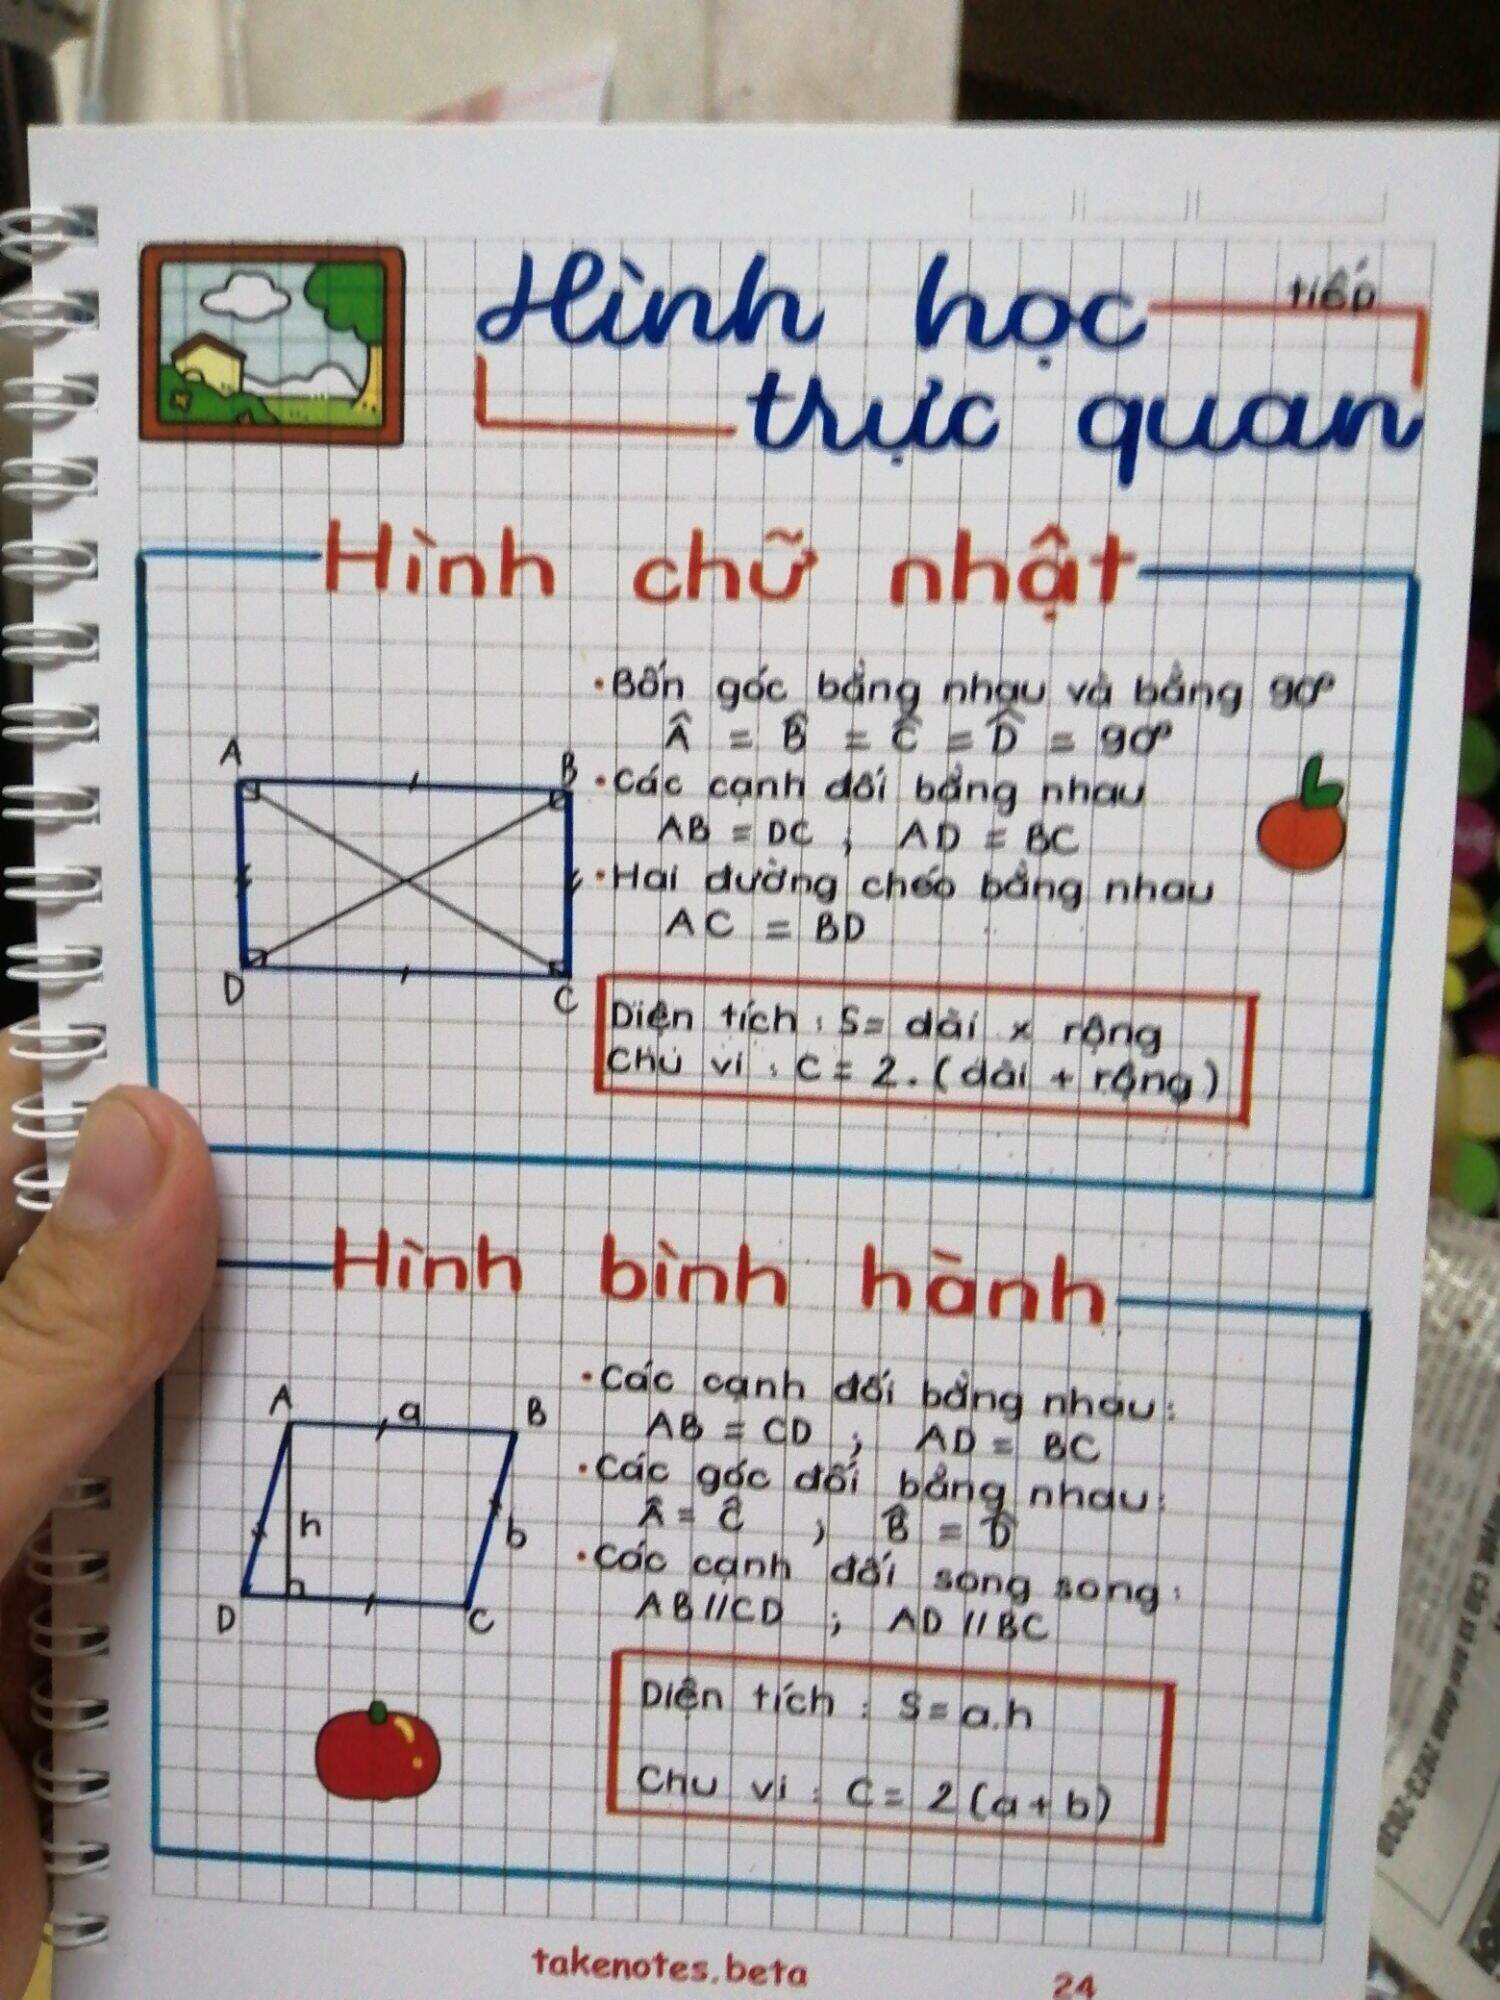 Hình học tiếp
trực quan
Hình chữ nhật
• Bốn góc bằng nhau và bằng 90°
Â = B̂ = Ĉ = D̂ = 90°
• Các cạnh đối bằng nhau
AB = DC ; AD = BC
• Hai đường chéo bằng nhau
AC = BD
A
B
D
C
Diện tích : S = dài x rộng
Chu vi : C = 2.(dài + rộng)
Hình bình hành
• Các cạnh đối bằng nhau:
AB = CD ; AD = BC
• Các góc đối bằng nhau:
Â = Ĉ ; B̂ = D̂
• Các cạnh đối song song:
AB // CD ; AD // BC
A
a
B
h
b
D
C
Diện tích : S = a.h
Chu vi : C = 2(a + b)
takenotes.beta
24